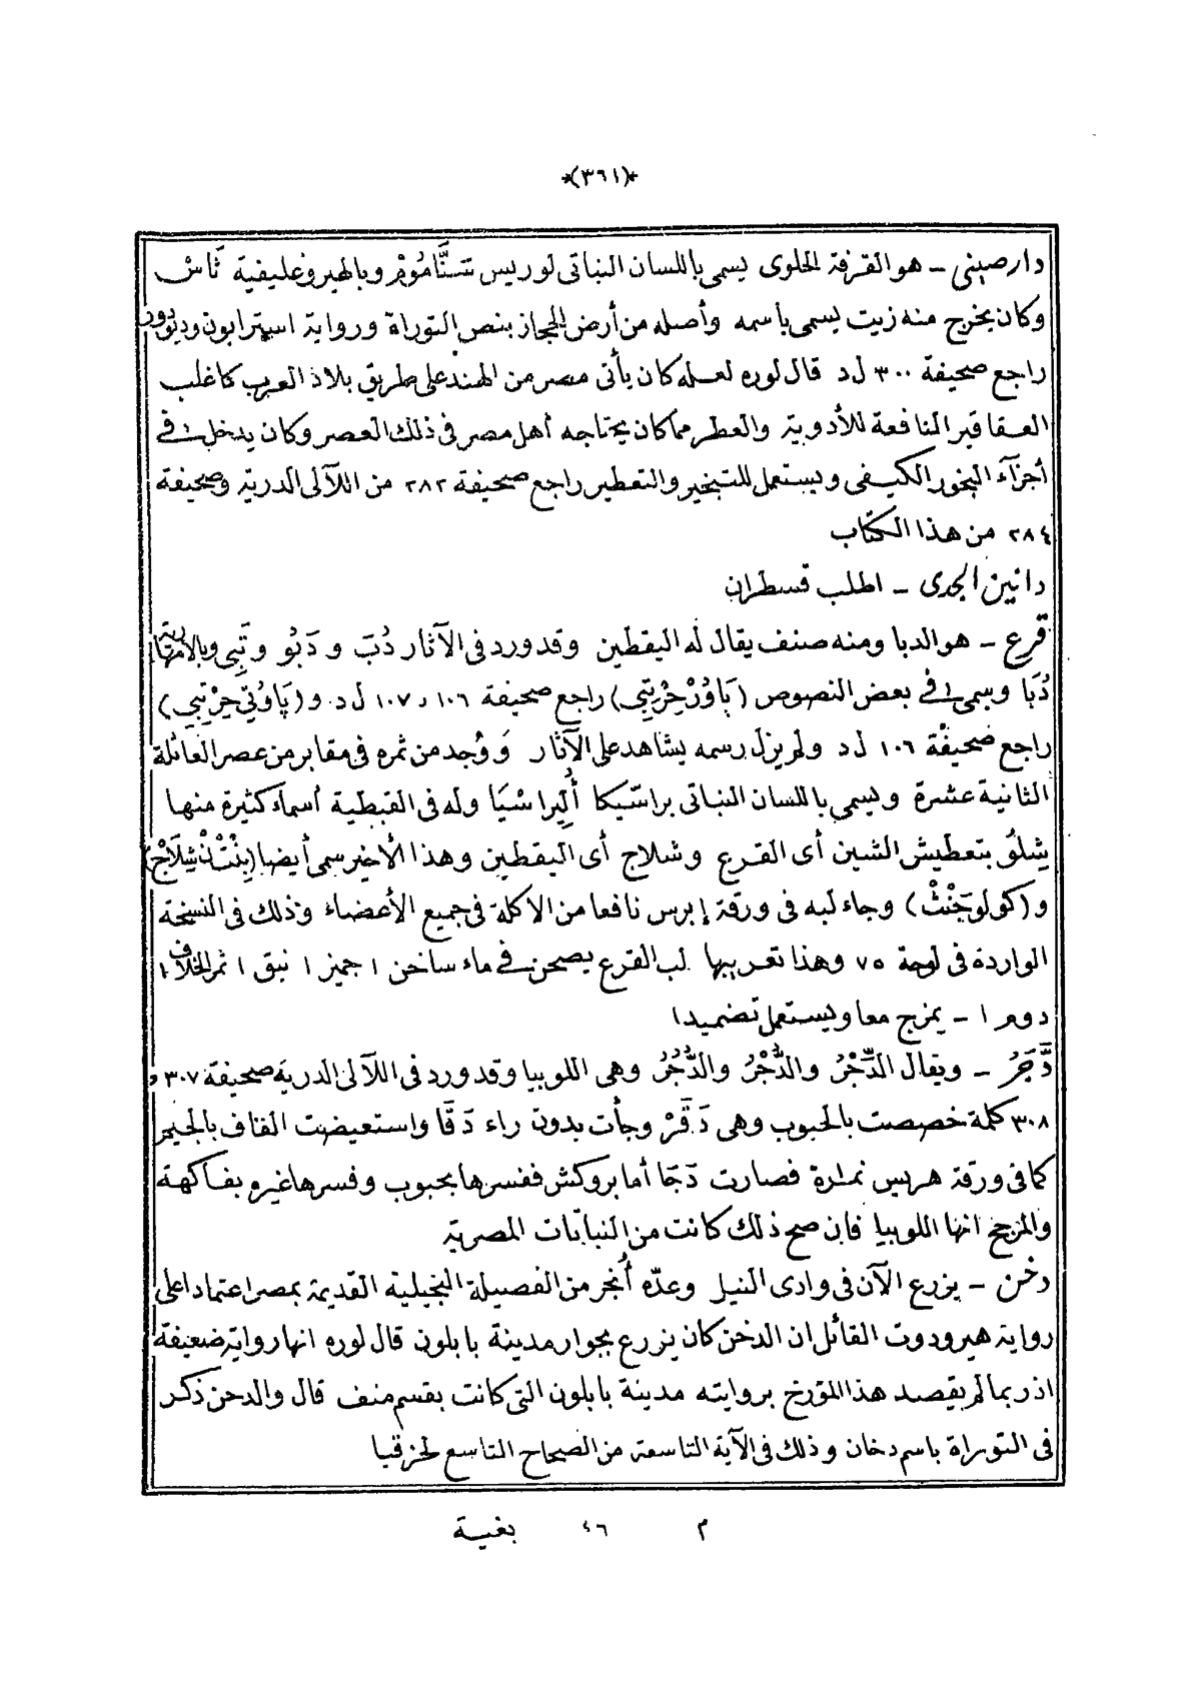 *(٣٦١)*
دارصينى ـ هو القرفة الحلوى يسمى باللسان النباتى لوريس سَنَّامُومْ وبالهيروغليفية تَاسْ
وكان يخرج منه زيت يسمى باسمه وأصله من أرض الحجاز بنص التوراة ورواية استرابون وديودور
راجع صحيفة ٣٠٠ ل د قال لوره لعله كان يأتى مصر من الهند على طريق بلاد العرب كاغلب
العقاقير النافعة للأدوية والعطر مما كان يحتاجه أهل مصر فى ذلك العصر وكان يدخل فى
أجزآء البخور الكيفى ويستعمل للتبخير والتعطير راجع صحيفة ٢٨٢ من اللآلى الدرية وصحيفة
٢٨٤ من هذا الكتاب
دانين الجدى ـ اطلب قسطران
قرع ـ هو الدبا ومنه صنف يقال له اليقطين وقد ورد فى الآثار دُبَ و دَبُو و تَبِى وبالامهارية
دُبَا وسمى فى بعض النصوص (بَاوُرْخِرْتِبِى) راجع صحيفة ١٠٦ ر ١٠٧ ل د و (پَاوُتِى خِرْتِبِى)
راجع صحيفة ١٠٦ ل د ولم يزل رسمه يشاهد على الآثار وَوُجد من ثمره فى مقابر من عصر العائلة
الثانية عشرة ويسمى باللسان النباتى براسّيكا أُلِيراسْيَا وله فى القبطية أسماء كثيرة منها
شِلُو بتعطيش الشين أى القرع وشلاج أى اليقطين وهذا الأخير سمى أيضا (بِنْتْنْ شِلَاجْ)
و(كولوجَنْثْ) وجاء لبه فى ورقة إبرس نافعا من الاكلة فى جميع الأعضاء وذلك فى النسخة
الواردة فى لوحة ٧٥ وهذا تعريبها لب القرع يصحن فى ماء ساخن ١ جميز ١ نبق ١ ثمر الخلاف ١
دوم ١ ـ يمزج معا ويستعمل تضميدا
دَّجَرُ ـ ويقال الدِّجْرُ والدَّجْرُ والدُّجُرُ وهى اللوبيا وقد ورد فى اللآلى الدرية صحيفة ٣٠٧ و
٣٠٨ كلمة خصصت بالحبوب وهى دَقَّرْ وجأت بدون راء دَقَّا واستعيضت القاف بالجيم
كما فى ورقة هريس نمرة فصارت دَجَا أما بروكش ففسرها بحبوب وفسرها غيره بفاكهة
والمرجح انها اللوبيا فان صح ذلك كانت من النباتات المصرية
دخن ـ يزرع الآن فى وادى النيل وعدّه أُنجر من الفصيلة النجيلية القديمة بمصر اعتمادا على
رواية هيرودوت القائل ان الدخن كان يزرع بجوار مدينة بابلون قال لوره انها رواية ضعيفة
اذ ربما لم يقصد هذا المؤرخ بروايته مدينة بابلون التى كانت بقسم منف قال والدخن ذكر
فى التوراة باسم دخان وذلك فى الآية التاسعة من الصحاح التاسع لحزقيا
م ٤٦ بغية